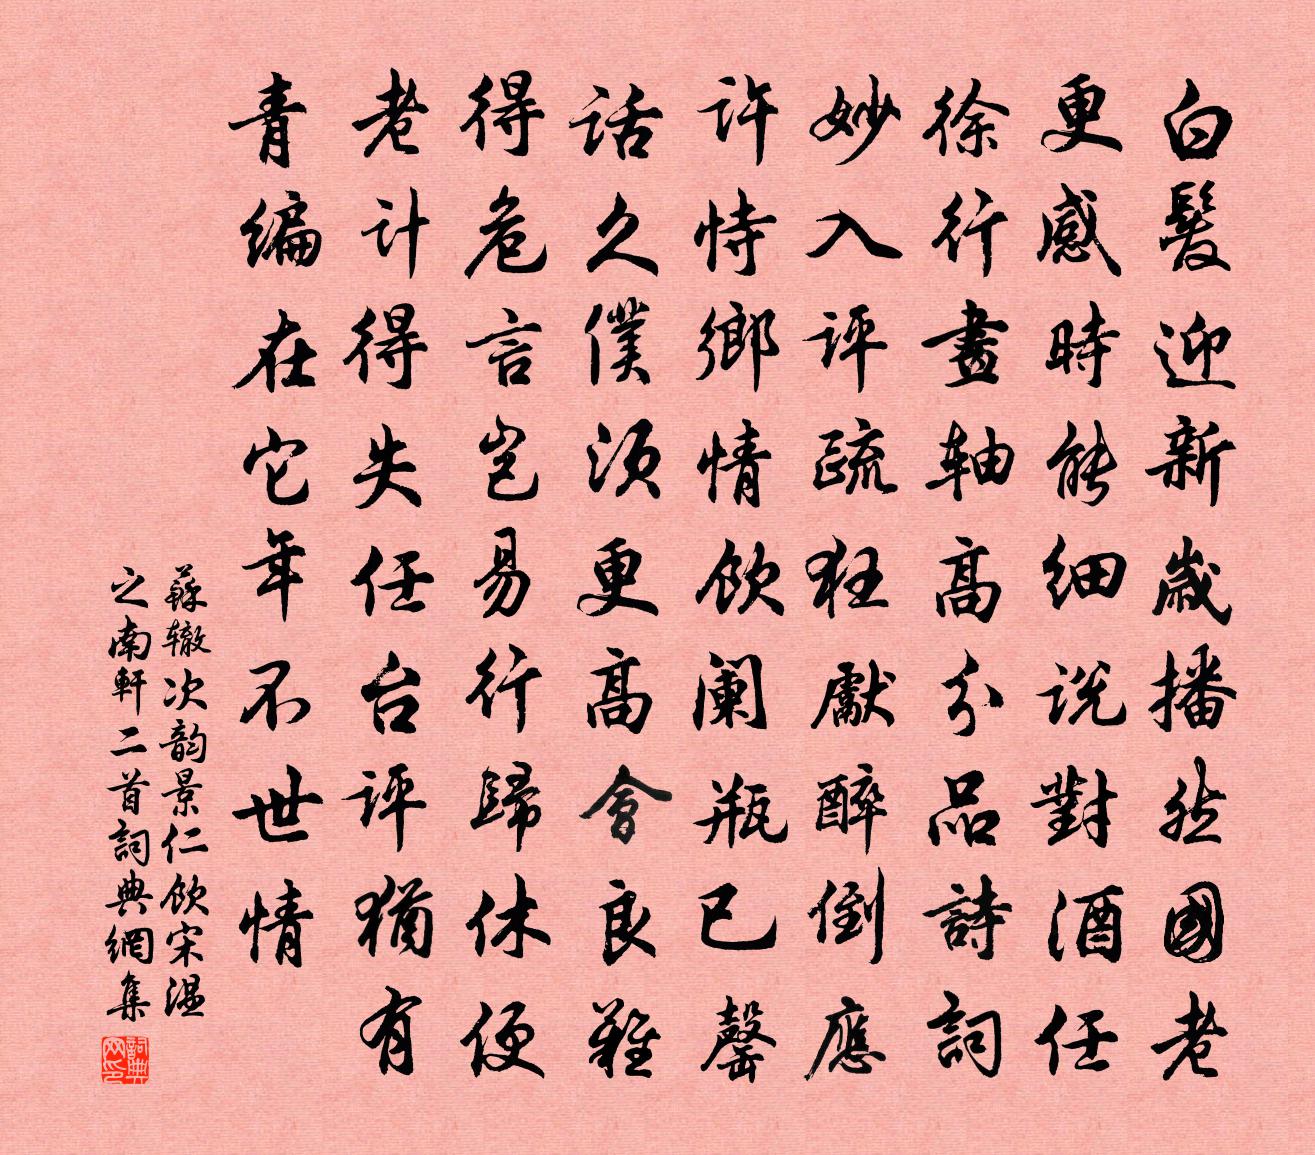 白髮迎新歲播然國老
更感時能細說對酒任
徐行畫軸高分品詩詞
妙入評疏狂獻醉倒應
許恃鄉情飲闌瓶已罄
話久僕須更高會良難
得危言豈易行歸休便
老計得失任台評猶有
青編在它年不世情
蘇辙次韵景仁飲宋温
之南軒二首詞典網集
詞典网印